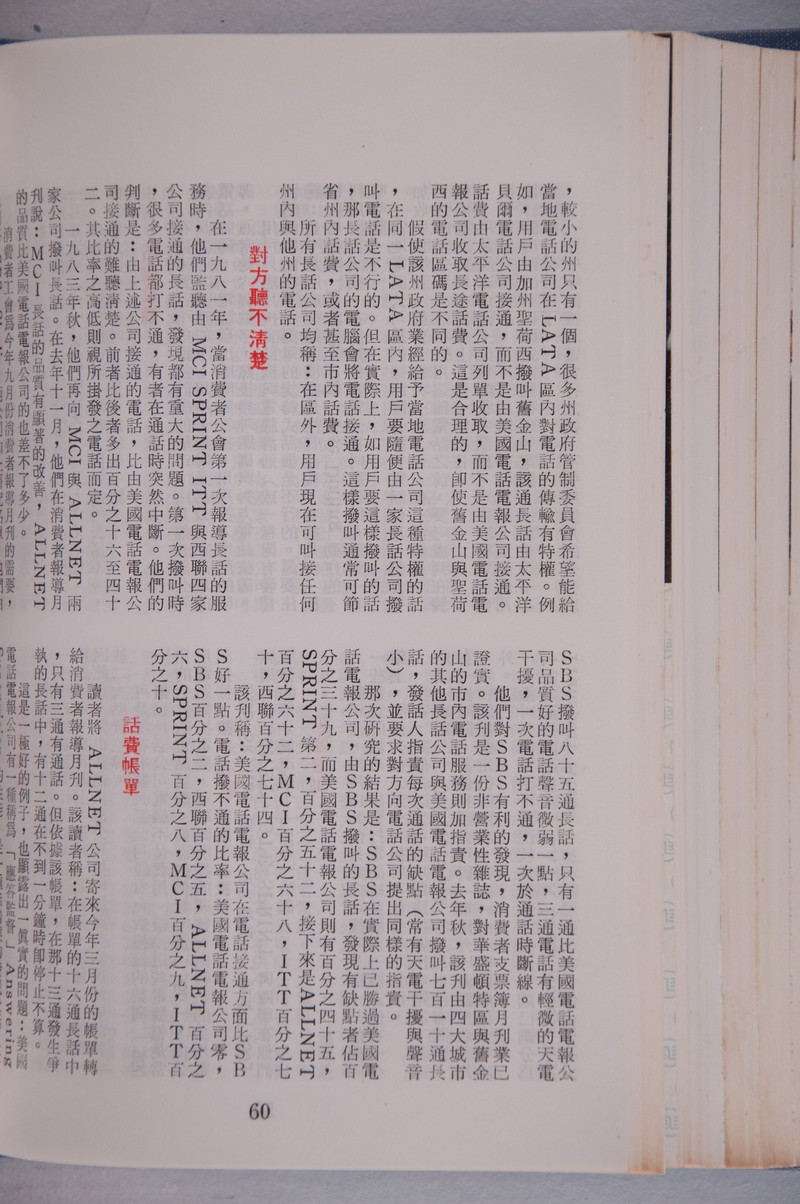 ，較小的州只有一個，很多州政府管制委員會希望能給
當地電話公司在LATA區內對電話的傳輸有特權。例
如，用戶由加州聖荷西撥叫舊金山，該通長話由太平洋
貝爾電話公司接通，而不是由美國電話電報公司接通。
話費由太平洋電話公司列單收取，而不是由美國電話電
報公司收取長途話費。這是合理的，卽使舊金山與聖荷
西的電話區碼是不同的。
假使該州政府業經給予當地電話公司這種特權的話
，在同一LATA區內，用戶要隨便由一家長話公司撥
叫電話是不行的。但在實際上，如用戶要這樣撥叫的話
，那長話公司的電腦會將電話接通。這樣撥叫通常可節
省州內話費，或者甚至市內話費。
所有長話公司均稱：在區外，用戶現在可叫接任何
州內與他州的電話。
對方聽不清楚
在一九八一年，當消費者公會第一次報導長話的服
務時，他們監聽由 MCI SPRINT ITT 與西聯四家
公司接通的長話，發現都有重大的問題。第一次撥叫時
，很多電話都打不通，有者在通話時突然中斷。他們的
判斷是：由上述公司接通的電話，比由美國電話電報公
司接通的難聽清楚。前者比後者多出百分之十六至四十
二。其比率之高低則視所掛發之電話而定。
一九八三年秋，他們再向 MCI 與 ALLNET 兩
家公司撥叫長話。在去年十一月，他們在消費者報導月
刊說：MCI長話的品質有顯著的改善，ALLNET
的品質比美國電話電報公司的也差不了多少。
消費者工會爲今年九月份消費者報導月刊的需要，
SBS撥叫八十五通長話，只有一通比美國電話電報公
司品質好的電話聲音微弱一點，三通電話有輕微的天電
干擾，一次電話打不通，一次於通話時斷線。
他們對SBS有利的發現，消費者支票簿月刊業已
證實。該刊是一份非營業性雜誌，對華盛頓特區與舊金
山的市內電話服務則加指責。去年秋，該刊由四大城市
的其他長話公司與美國電話電報公司撥叫七百一十通長
話，發話人指責每次通話的缺點（常有天電干擾與聲音
小），並要求對方向電話公司提出同樣的指責。
那次硏究的結果是：SBS在實際上已勝過美國電
話電報公司，由SBS撥叫的長話，發現有缺點者佔百
分之三十九，而美國電話電報公司則有百分之四十五，
SPRINT 第二，百分之五十二，接下來是ALLNET
百分之六十二，MCI百分之六十八，ITT百分之七
十，西聯百分之七十四。
該刊稱：美國電話電報公司在電話接通方面比SB
S好一點。電話撥不通的比率：美國電話電報公司零，
SBS百分之二，西聯百分之五，ALLNET 百分之
六，SPRINT 百分之八，MCI百分之九，ITT百
分之十。
話費帳單
讀者將 ALLNET 公司寄來今年三月份的帳單轉
給消費者報導月刊。該讀者稱：在帳單的十六通長話中
，只有三通有通話。但依據該帳單，在那十三通發生爭
執的長話中，有十二通在不到一分鐘時卽停止不算。
這是一極好的例子，也顯露出一眞實的問題：美國
電話電報公司有一種稱爲「應答監督」Answering
60